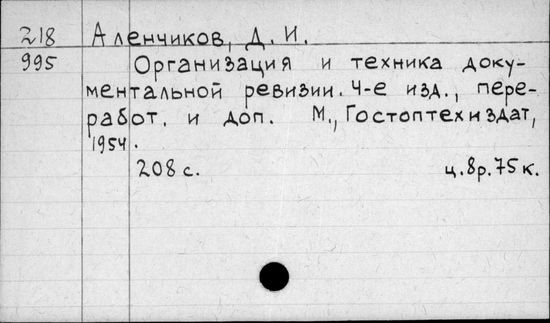 218 Аленчиков, Д. И.
995 Организация и техника доку-
ментальной ревизии. 4-е изд., пере-
работ. и доп. М., Гостоптехиздат,
1954.
208 с. ц. 8р. 75 к.